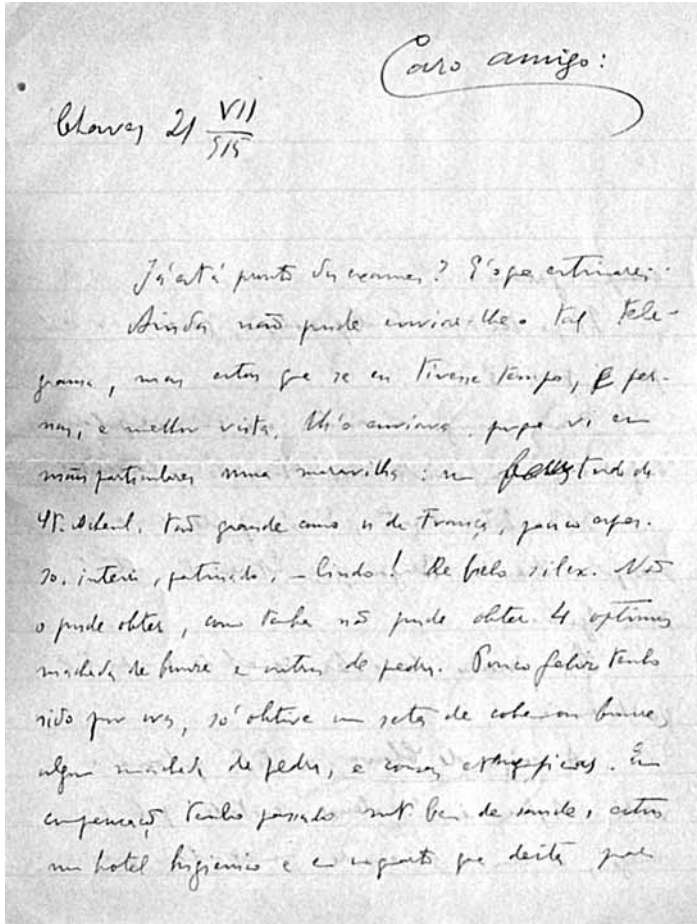 Caro amigo:
Chaves 21 VII
915
Já está pronto dos exames? É o que estimarei.
Ainda não pude enviar-lhe o tal tele-
grama, mas estou que se eu tivesse tempo, e per-
nas, e melhor vista, lh'o enviava, porque vi em
mãos particulares uma maravilha: um
St. Acheul, tão grande como os de França, pouco espes-
so, inteiro, patinado, – lindo! De belo silex. Não
o pude obter, como tambem não pude obter 4 optimos
machados de bronze e outros de pedra. Pouco feliz tenho
sido por ora, só obtive uma seta de cobre ou bronze,
alguns machados de pedra, e cousas ethnograficas. Em
compensação tenho passado mt bem de saude, estou
num hotel higienico e em quarto que deita para